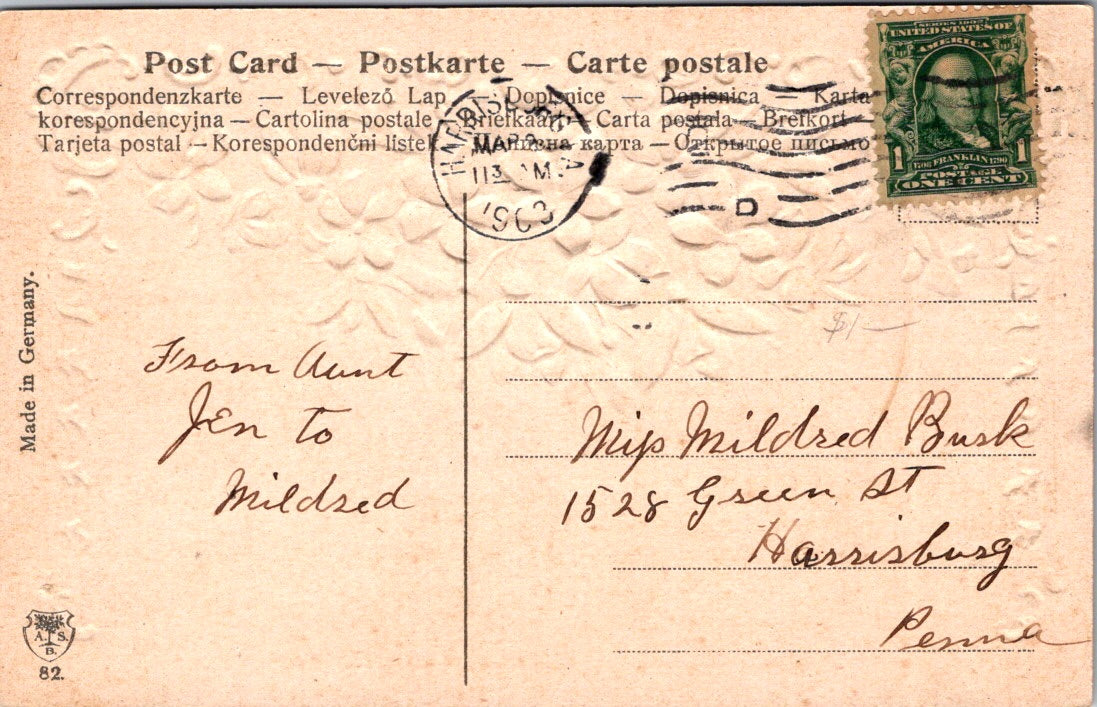 Post Card — Postkarte — Carte postale
Correspondenzkarte — Levelező Lap — Dopisnice — Dopisnica — Karta
korespondencyjna — Cartolina postale — Brefkaart — Carta postala — Brefkort
Tarjeta postal — Korespondenční listek карта — Открытое письмо
HARRISBURG
MAR
11 30 AM
190
D
SERIES 1902
UNITED STATES OF
AMERICA
1 1706 FRANKLIN 1790 1
POSTAGE
ONE CENT
$1—
Made in Germany.
From Aunt
Jen to
Mildred
Miss Mildred Busk
1528 Green St
Harrisburg
Penna
A. S.
B.
82.